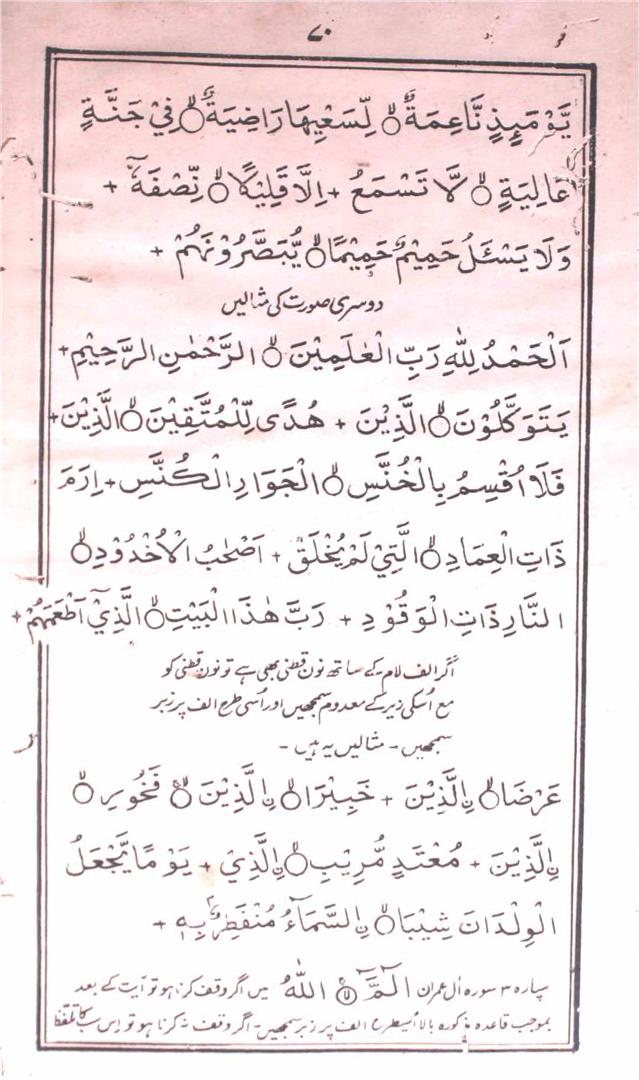 ۷۰
يَّوْمَئِذٍ نَّاعِمَةٌ ۙ لِّسَعْيِهَا رَاضِيَةٌ ۙ فِيْ جَنَّةٍ
عَالِيَةٍ ۙ لَّا تَسْمَعُ + اِلَّا قَلِيْلًا ۙ نِّصْفَهٗٓ +
وَلَا يَسْـَٔلُ حَمِيْمٌ حَمِيْمًا ۙ يُّبَصَّرُوْنَهُمْ +
دوسری صورت کی مثالیں
اَلْحَمْدُ لِلّٰهِ رَبِّ الْعٰلَمِيْنَ ۙ الرَّحْمٰنِ الرَّحِيْمِ +
يَتَوَكَّلُوْنَ ۙ الَّذِيْنَ + هُدًى لِّلْمُتَّقِيْنَ ۙ الَّذِيْنَ +
فَلَا اُقْسِمُ بِالْخُنَّسِ ۙ الْجَوَارِ الْكُنَّسِ + اِرَمَ
ذَاتِ الْعِمَادِ ۙ الَّتِيْ لَمْ يُخْلَقْ + اَصْحٰبُ الْاُخْدُوْدِ ۙ
النَّارِ ذَاتِ الْوَقُوْدِ + رَبَّ هٰذَا الْبَيْتِ ۙ الَّذِيْٓ اَطْعَمَهُمْ +
اگر الف لام کے ساتھ نون قطنی بھی ہے تو نون قطنی کو
مع اُسکی زیر کے معدوم سمجھیں اور اُسی طرح الف پر زبر
سمجھیں۔ مثالیں یہ ہیں۔
عَرْضَا ۙ ِۨالَّذِيْنَ + خَبِيْرَا ۙ ِۨالَّذِيْنَ ۙ فَخُوْرِ ۙ
ِۨالَّذِيْنَ + مُعْتَدٍ مُّرِيْبِ ۙ ِۨالَّذِيْ + يَوْمًا يَّجْعَلُ
الْوِلْدَانَ شِيْبَا ۙ ِۨالسَّمَآءُ مُنْفَطِرٌۢ بِهٖ +
سپارہ ۳ سورہ اٰل عمران الٓمّٓ ۙ اللّٰهُ میں اگر وقف کرنا ہو تو آیت کے بعد
بموجب قاعدہ مذکورہ بالا اسیطرح الف پر زبر سمجھیں۔ اگر وقف نہ کرنا ہو تو اس کا تلفّظ